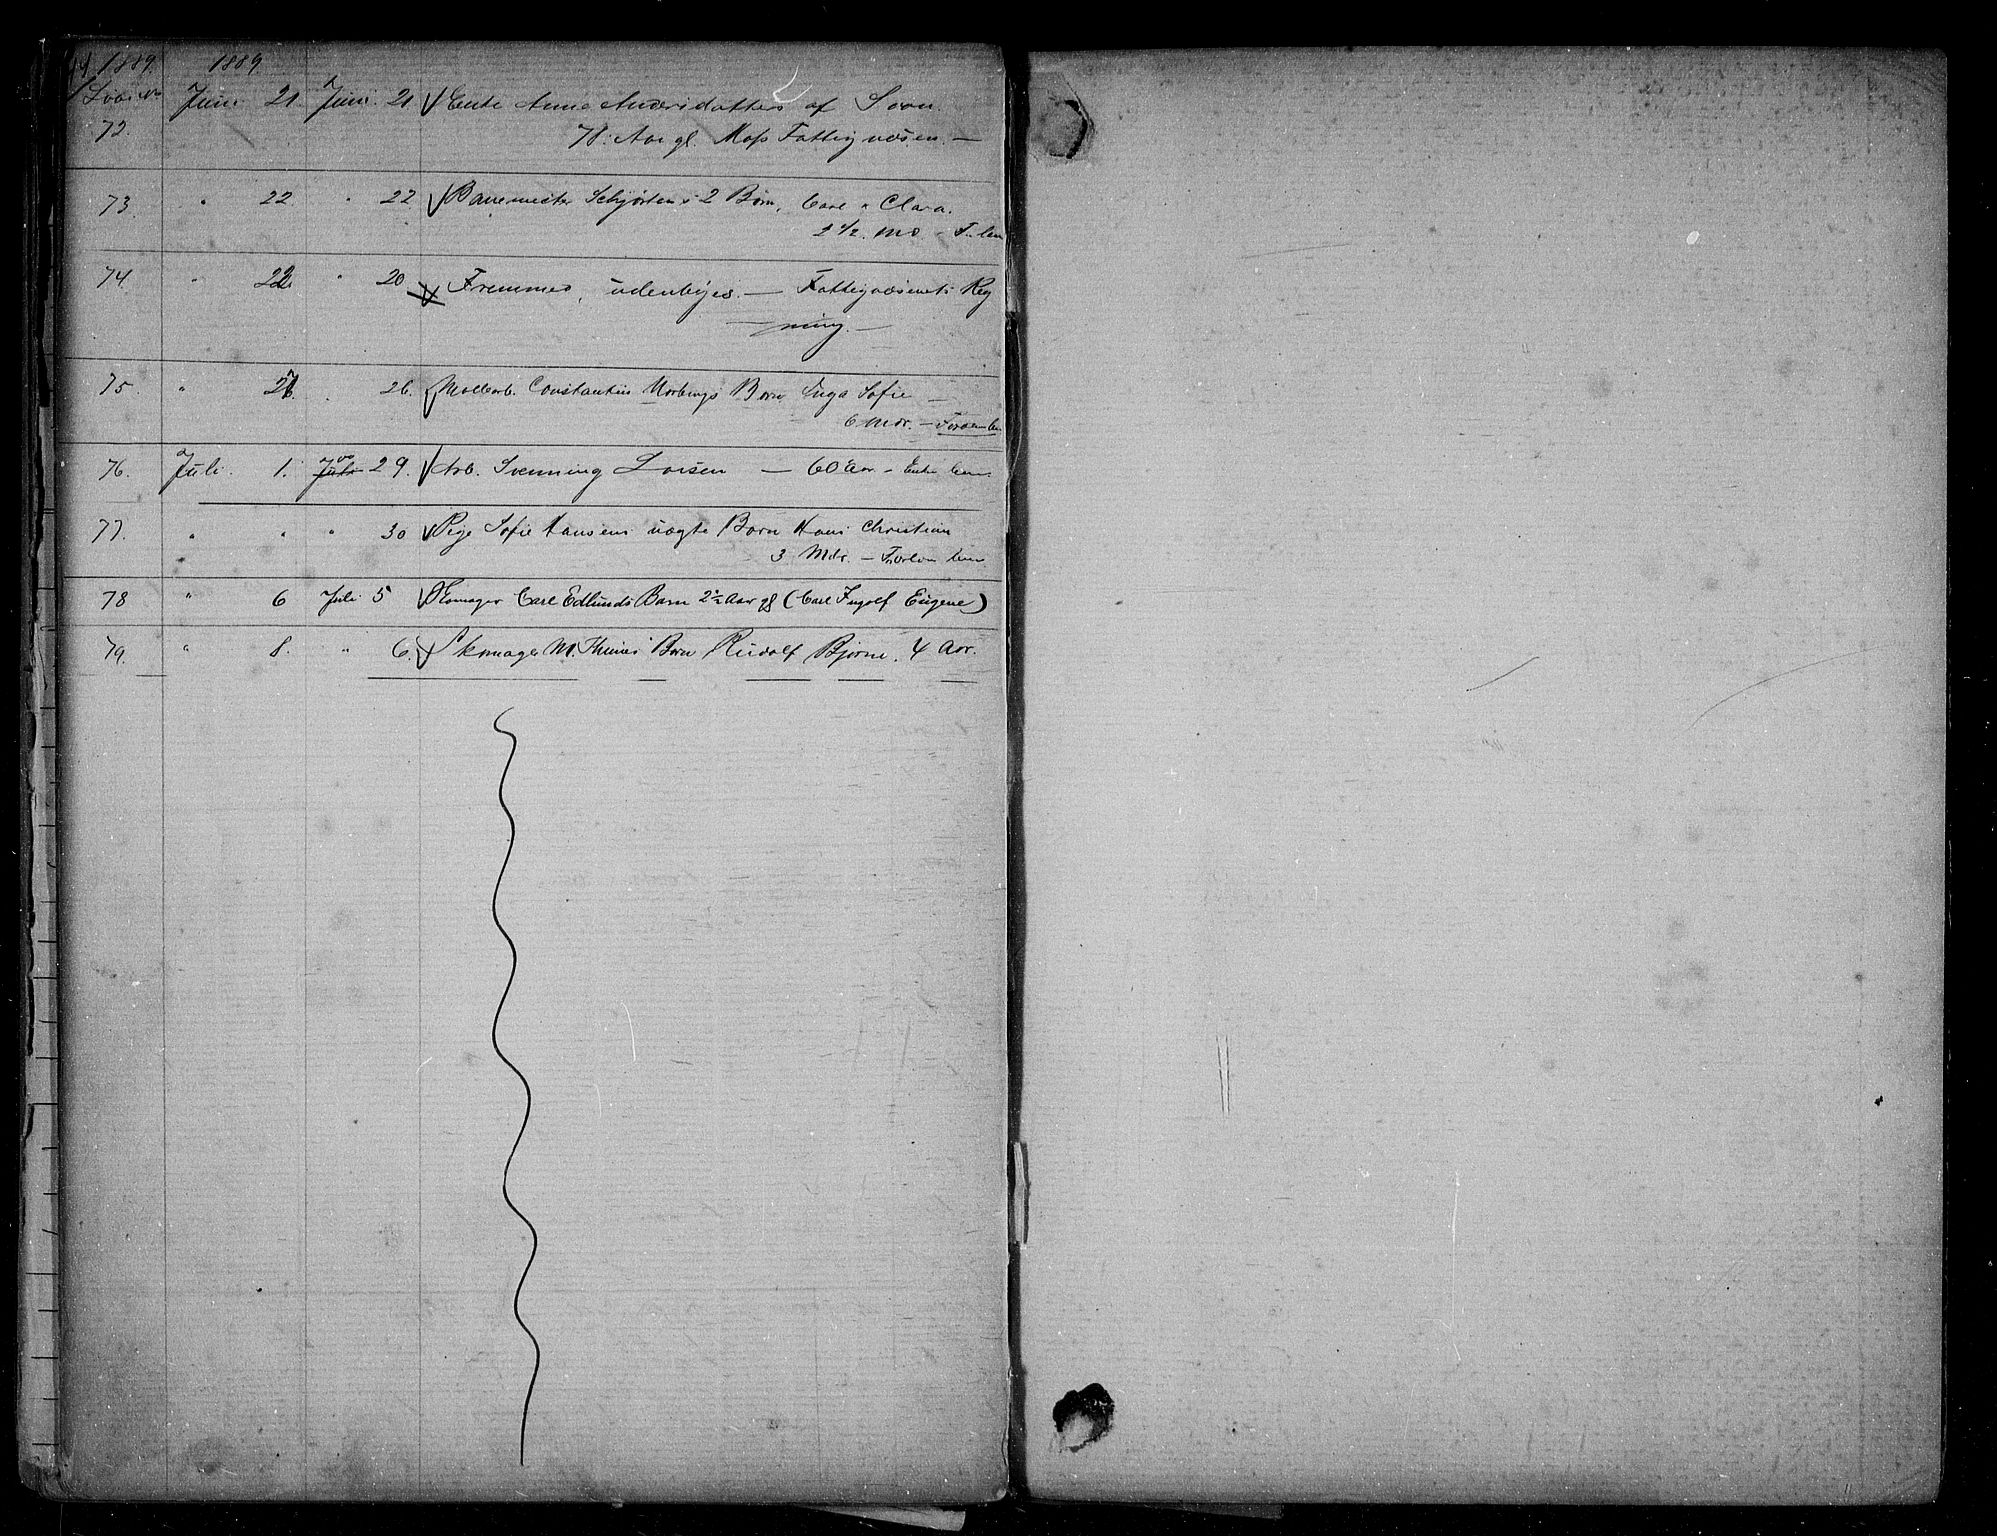 1889. 1889.
Løbe No Juni 21. Juni. 21 Enke Anne Andersdatter af Soon.
72. 71. Aar gl. Moss Fattigvæsen. —
73 " 22 " 22 Banemester Schjørtens 2 Børn, Carl & Clara.
2 1/2.
74. " 22. " 20 Fremmed, udenbyes. — Fattigvæsenets Reg
ning. —
75 " 26. " 26. Constantin Børn Inga Sofie —
6 Mdr. —
76. Juli. 1. 29. Arb. Svenning Larsen — 60 Aar —
77. " " " 30 Pige Sofie Hansens uægte Barn Hans Christian
" 3 Mdr. —
78 " 6 Juli 5 Skomager Carl Edlunds Barn 2 1/2 Aar gl (Carl Ingolf Eugene)
79. " 8. " 6. Skomager M. Barn Rudolf Bjørne. 4 Aar.